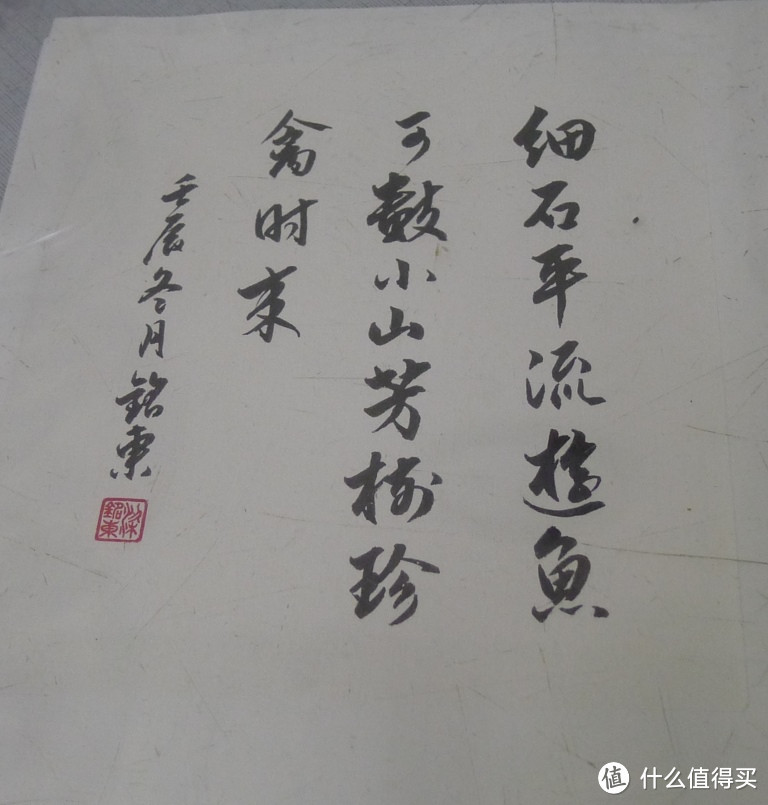 细石平流遊魚
可數小山芳樹珍
禽时来
壬辰冬月銘東
梁銘東
值 什么值得买